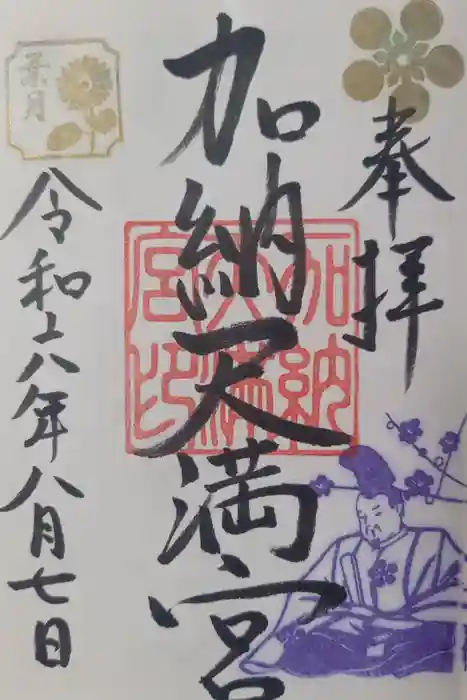 奉拝
加納天満宮
加納天満宮印
葉月
令和六年八月七日